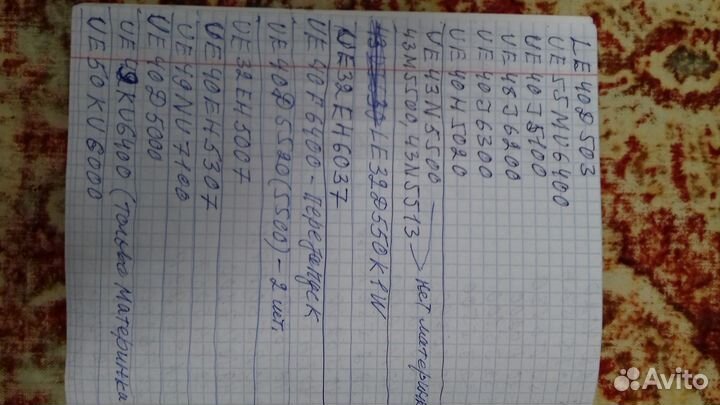 LE40D503
UE55MU6400
UE40J5100
UE48J6200
UE40J6300
UE40H5020
UE43N5500
43N5500, 43N5513 → нет материнк
LE32D550K1W
UE32EH6037
UE40F6400 - Перезапуск
UE40D5520 (5500) - 2 шт.
UE32EH5007
UE40EH5307
UE49NU7100
UE40D5000
UE49KU6400 (только материнка
UE50KU6000
Avito